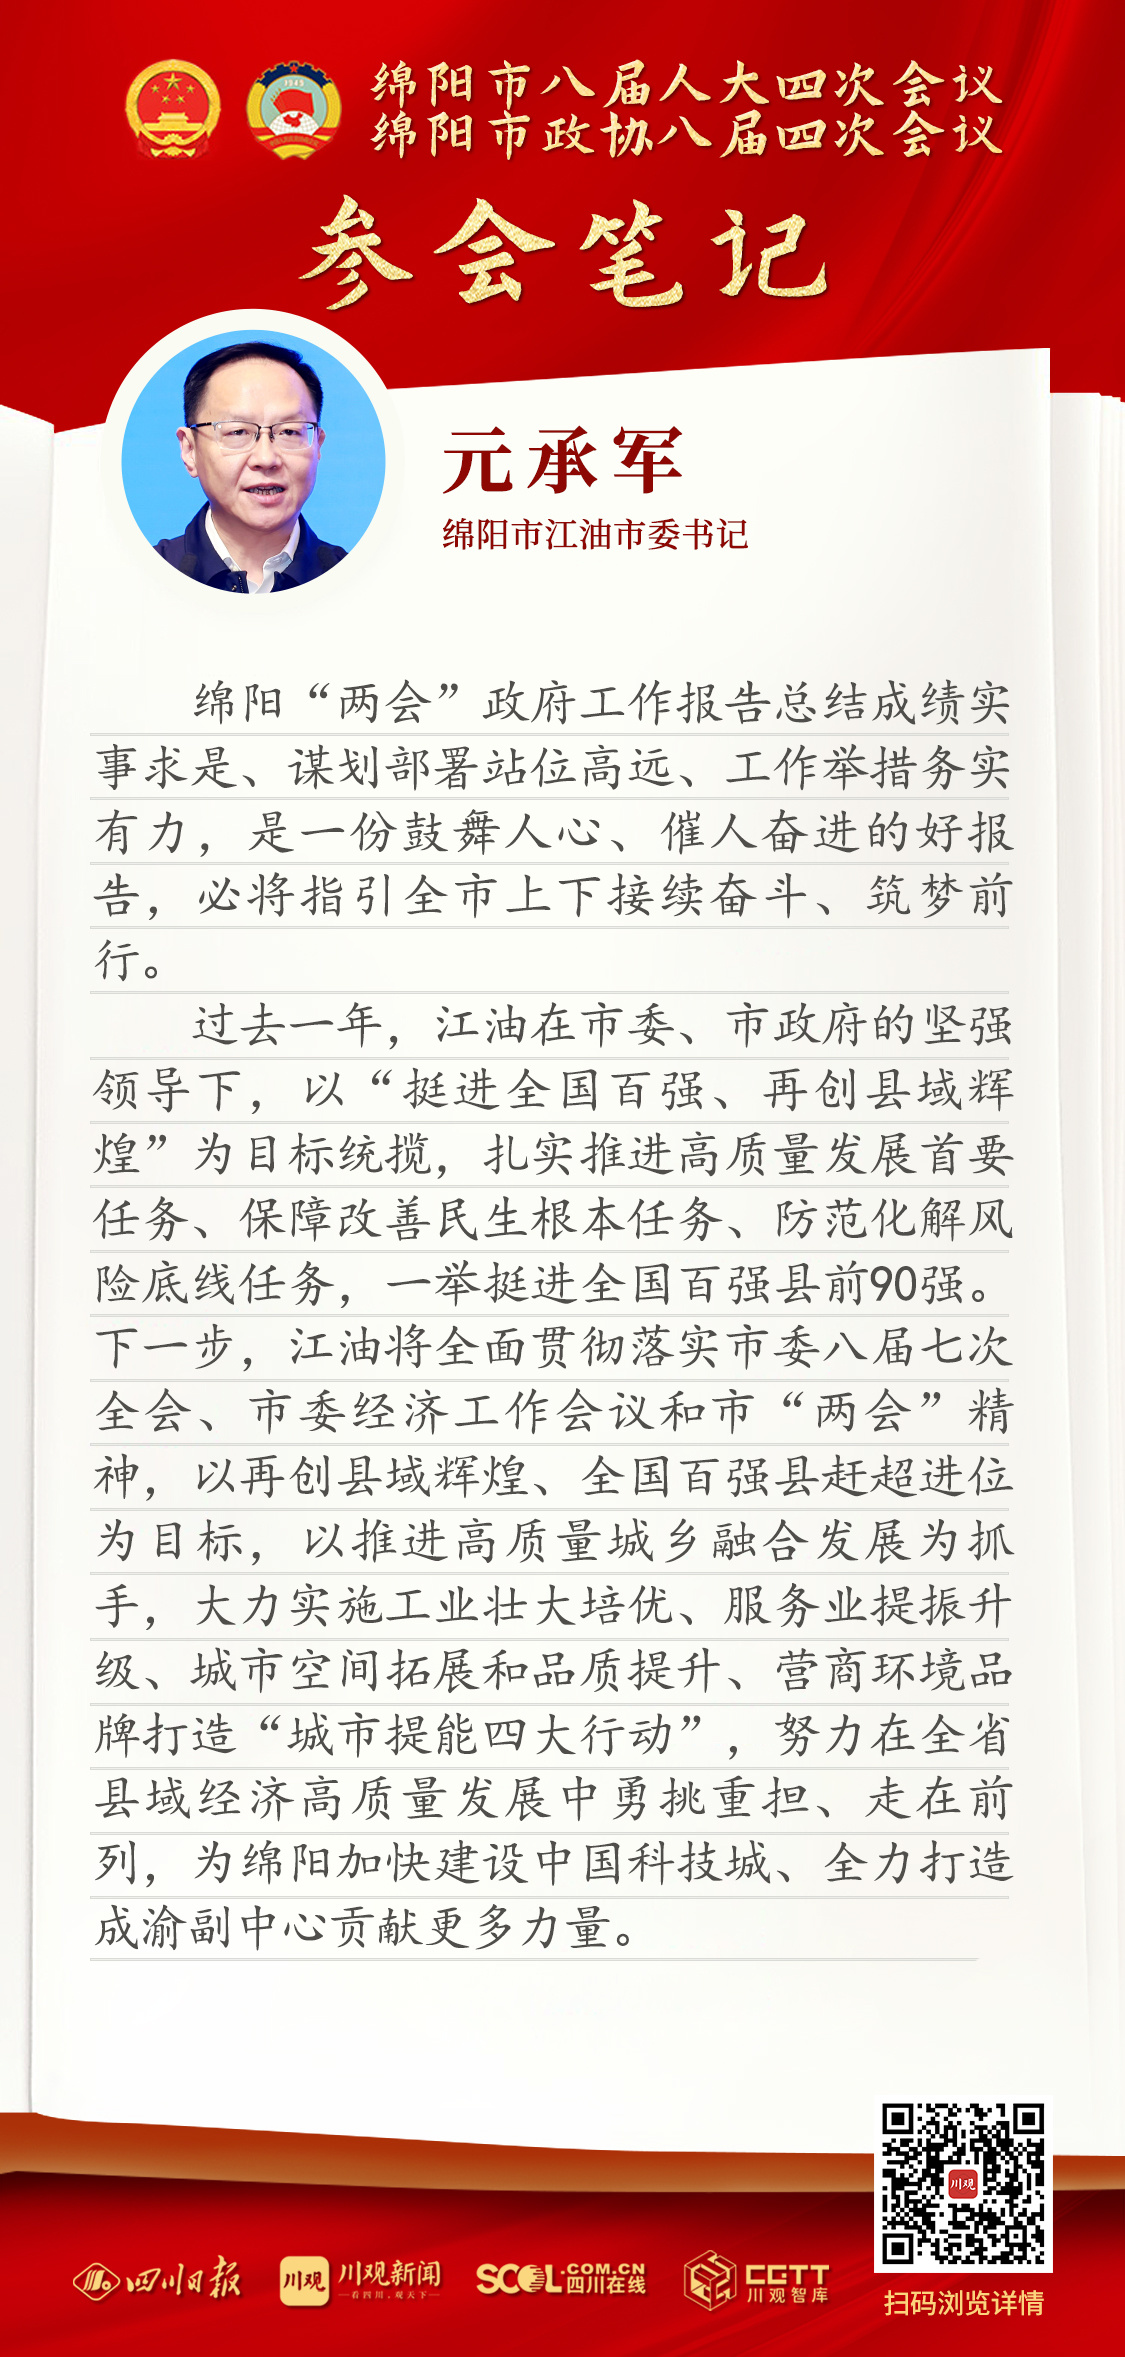 绵阳市八届人大四次会议
绵阳市政协八届四次会议
参会笔记
元承军
绵阳市江油市委书记
绵阳“两会”政府工作报告总结成绩实
事求是、谋划部署站位高远、工作举措务实
有力，是一份鼓舞人心、催人奋进的好报
告，必将指引全市上下接续奋斗、筑梦前
行。
过去一年，江油在市委、市政府的坚强
领导下，以“挺进全国百强、再创县域辉
煌”为目标统揽，扎实推进高质量发展首要
任务、保障改善民生根本任务、防范化解风
险底线任务，一举挺进全国百强县前90强。
下一步，江油将全面贯彻落实市委八届七次
全会、市委经济工作会议和市“两会”精
神，以再创县域辉煌、全国百强县赶超进位
为目标，以推进高质量城乡融合发展为抓
手，大力实施工业壮大培优、服务业提振升
级、城市空间拓展和品质提升、营商环境品
牌打造“城市提能四大行动”，努力在全省
县域经济高质量发展中勇挑重担、走在前
列，为绵阳加快建设中国科技城、全力打造
成渝副中心贡献更多力量。
川观
四川日报
川观
川观新闻
—看四川，观天下—
SCOL.COM.CN
四川在线
CGTT
川观智库
扫码浏览详情